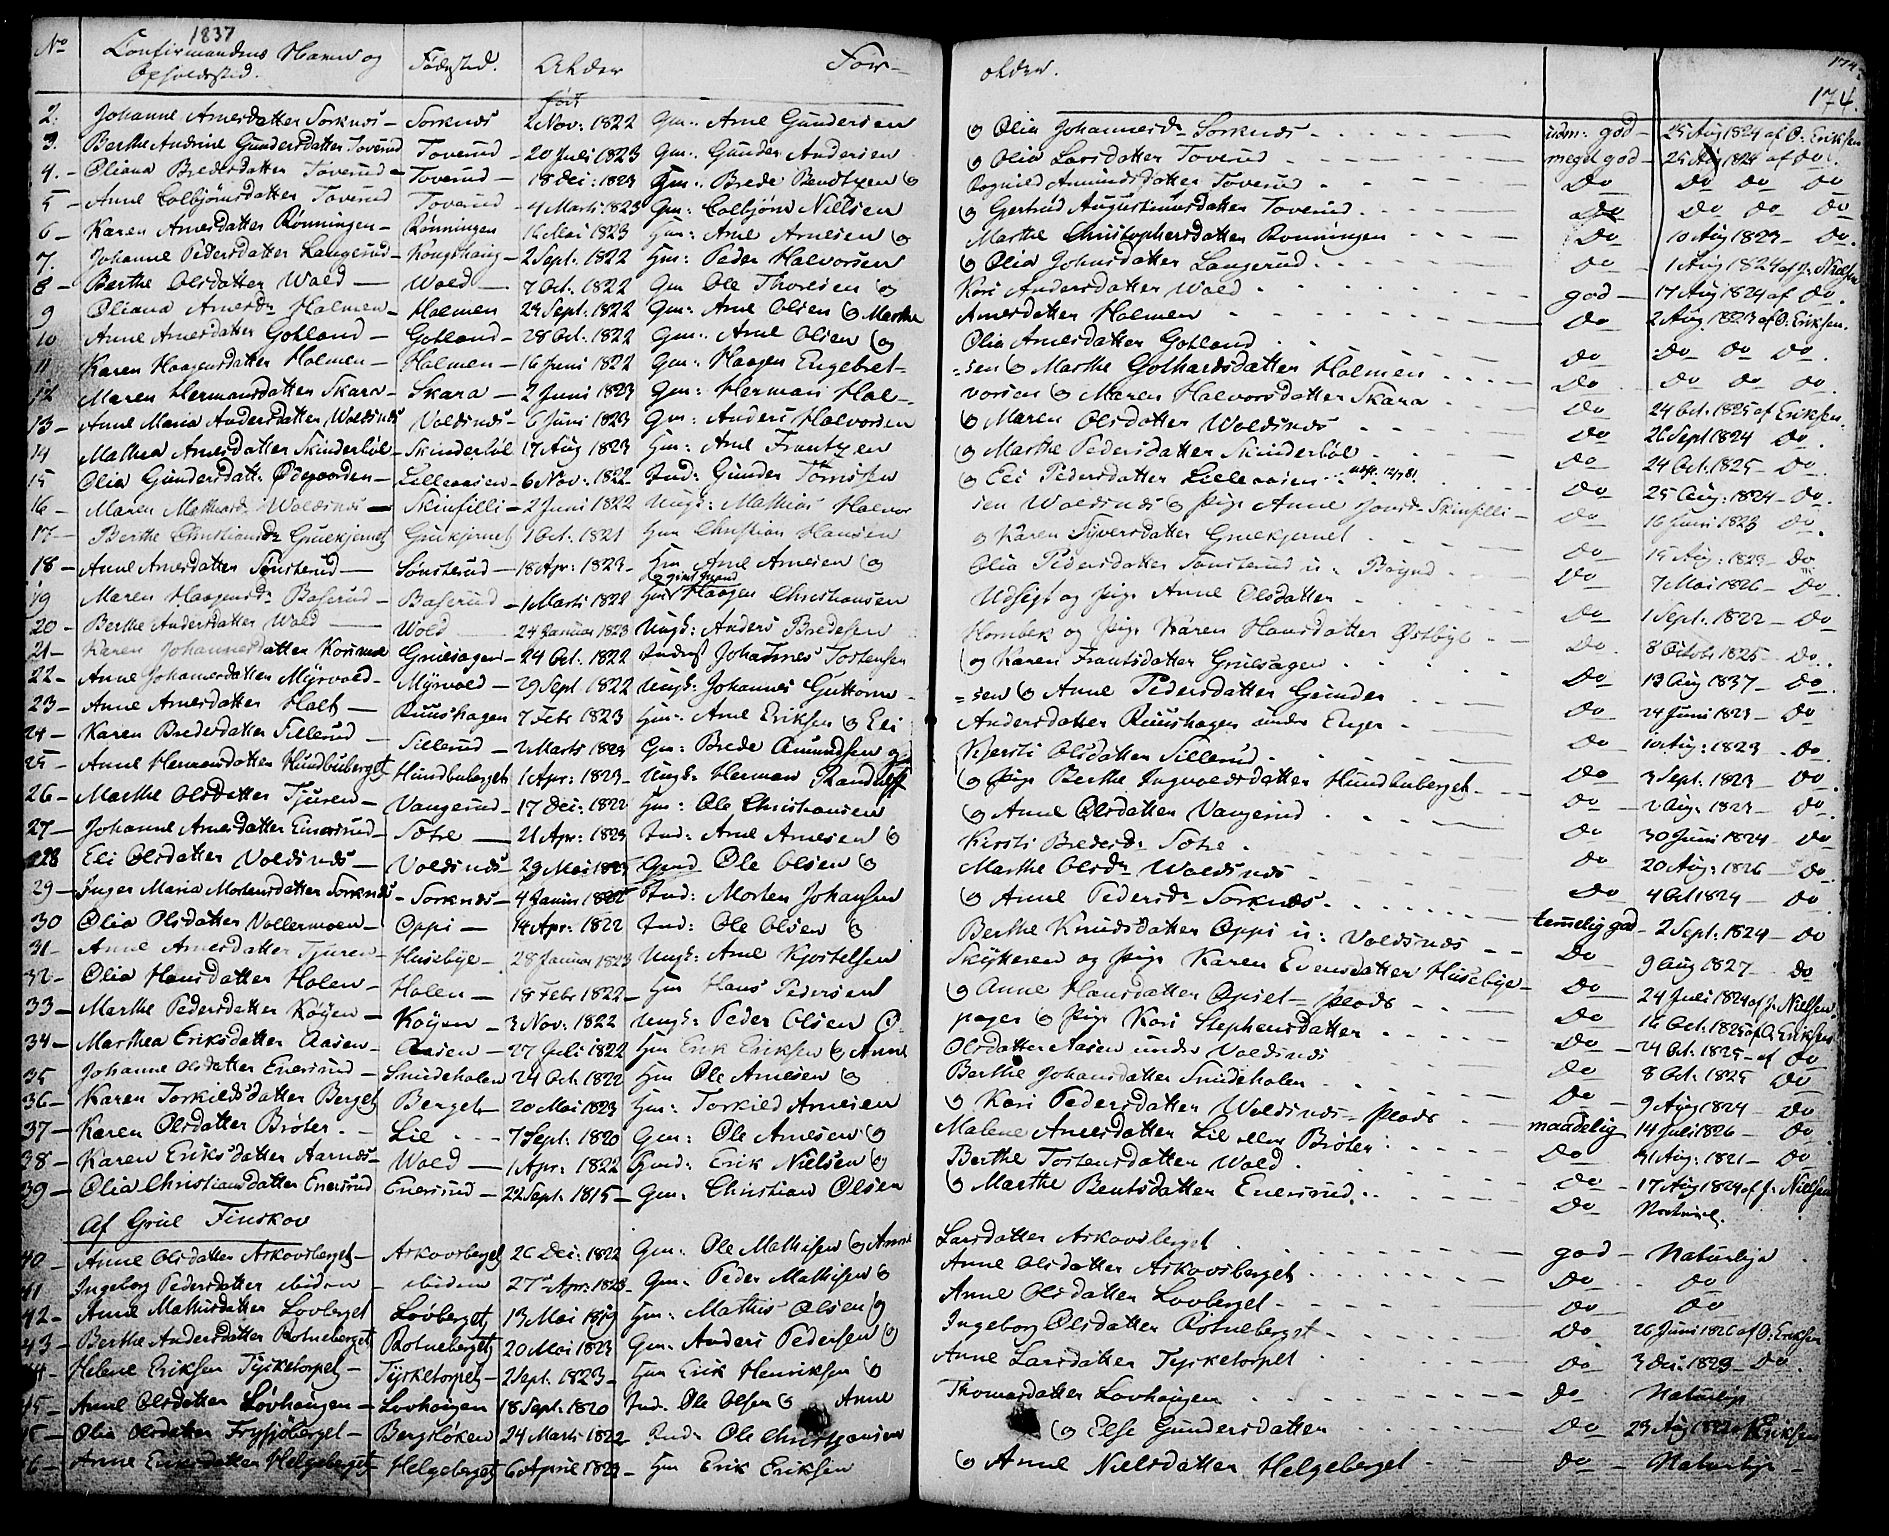 1837
No Confirmandens Navn og Opholdssted. Fødested. Alder For- ældre. 174
født 174.
2. Johanne Arnesdatter Sorknæs - Sorknæs 2 Nov: 1822 Gm: Arne Gundersen og Olia Johannesd. Sorknæs - udm: god - 25 Aug 1824 af O: Eriksen
3. Berthe Andrine Gundersdatter Toverud Toverud - 20 Juli 1823 Gm: Gunder Andersen og Olia Larsdatter Toverud - meget god - 25 Aug 1824 af Do.
4. - Oliana Bredesdatter Toverud - Toverud - 18 Dec: 1823 Gm: Brede Bendtzen og Ragnild Amundsdatter Toverud - Do Do Do Do
5 - Anne Colbjørnsdatter Toverud Toverud - 4 Marts 1823 Gm: Colbjørn Nielsen og Gertrud Augustinusdatter Toverud - Do Do Do Do
6 - Karen Arnesdatter Rønningen - Rønningen 16 Mai 1823 Hm: Arne Arnesen og Marthe Christophersdatter Rønningen - Do 10 Aug 1823 - Do.
7. Johanne Pedersdatter Langerud - Kongshaug - 2 Sept. 1822 Hm: Peder Halvorsen og Olia Johnsdatter Langerud - Do 1 Aug 1824 af J: Nielsen
8 - Berthe Olsdatter Wold - Wold - 7 Oct. 1822 Gm Ole Thoresen og Kari Andersdatter Wold - god - 17 Aug 1824 af Do.
9 Oliana Arnesd. Holmen - Holmen 23 Sept. 1822 Gm: Arne Olsen og Marthe Arnesdatter Holmen - Do 2 Aug 1823 af O: Eriksen.
10 Anne Arnesdatter Gotland - Gotland - 28 Oct. 1822 Gm: Arne Olsen og Olia Arnesdatter Gotland - Do Do Do Do.
11 Karen Haagensdatter Holmen - Holmen - 16 Juni 1822 Gm: Haagen Engebret- =sen og Marthe Gothardsdatter Holmen - Do Do Do Do.
12 Maren Hermansdatter Skara - Skara - 2 Juni 1823 Gm: Herman Hal- vorsen og Maren Halvorsdatter Skara - Do 24 Oct. 1825 af Eriksen.
13 - Anne Maria Andersdatter Woldsnæs Voldsnæs - 6 Juni 1823 Gm: Anders Halvorsen og Maren Olsdatter Woldsnæs - Do 26 Sept 1824 Do.
14 Mathea Arnesdatter Skinderbøl - Skinderbøl 17 Aug 1823 Hm: Arne Frantzen og Marthe Pedersdatter Skinderbøl - Do 24 Oct. 1825 - Do.
15 Olia Gundersdatt: Ødegaarden - Lilleaasen - 6 Nov: 1822 Ind: Gunder Tønnesen og Eli Pedersdatter Lilleaasen - Do 25 Aug: 1824 - Do.
16 - Maren Mathiasd. Woldsnæs - Skinfilli - 2 Juni 1822 Ungk: Mathias Halvor sen Woldsnæs og Pige Anne Jonsd. Skinfilli - Do 16 Juni 1823 Do.
17 - Berthe Christiansd. Gruekjernet Gruekjernet 1 Oct. 1821 Hm Christian Hansen og Karen Syversdatter Gruekjernet - Do 15 Aug: 1823 - Do
18 - Anne Arnesdatter Sønsterud - Sønsterud - 18 Apr: 1823 - Hm Arne Arnesen og Olia Pedersdatter Sønsterud - Do 7 Mai 1826 - Do.
19 Maren Haagensd. Baserud - Baserud - 1 Marts 1822 Haagen Christiansen Udsegt og Pige Anne Olsdatter - Do 1 Sept. 1822 - Do
20 - Berthe Andersdatter Wold - Wold 24 Januar 1823 Ungk: Anders Bredesen Hornbek og Pige Karen Hansdatter Østbye - Do. 8 Octob 1825 - Do.
21 - Karen Johannesdatter Gruesagen - 24 Oct. 1822 Inderst Johannes Tostensen og Karen Frantsdatter Gruesagen - Do 13 Aug 1837 - Do.
22 - Anne Johannesdatter Myrvold - Myrvold - 29 Sept 1822 Ungk: Johannes Guttorm- =sen og Anne Pedersdatter Grinder - Do 24 Juni 1823 - Do
23 - Anne Arnesdatter Holt - Ruushagen 7 Febr 1823 Hm: Arne Eriksen og Eli Andersdatter Ruushagen under Enger - Do 10 Aug: 1823 - Do.
24 - Karen Bredesdatter Sillerud - Sillerud - 2 Marts 1823 Gm: Brede Amundsen og Kjersti Olsdatter Sillerud - Do 3 Sept. 1823 Do
25 - Anne Hermansdatter Hundbuberget Hundbuberget 1 Apr: 1823 - Ungk: Herman Randulff og Pige Berthe Ingvoldsdatter Hundbuberget - Do 2 Aug. 1823 - Do.
26 - Marthe Olsdatter Tjuren - Vangerud - 17 Dec: 1822 Hm: Ole Christiansen og Anne Olsdatter Vangerud - Do 30 Juni 1824 - Do
27 - Johanne Arnesdatter Enersrud - Sotre - 21 Apr: 1823 Ind: Arne Arnesen og Kirsti Bredesd. Sotre - Do 20 Aug: 1826 - Do
28 Eli Olsdatter Voldsnæs - Voldsnæs - 29 Mai 1823 Gmd Ole Olsen og Marthe Olsd. Woldsnæs - Do 4 Oct 1824 - Do
29 - Inger Maria Mortensdatter Sorknæs - Sorknæs - 4 Januar 1822 Ind: Morten Johansen og Anne Pedersd. Sorknæs - temmelig god - 2 Sept: 1824 - Do
30 Olia Olsdatter Vollermoen - Oppi - 14 Apr: 1822 Ind: Ole Olsen og Berthe Knudsdatter Oppi u: Voldsnæs - Do 9 Aug 1827 - Do
31 - Anne Arnesdatter Tjuren - Husebye - 28 Januar 1823 Ungk: Arne Kjostelsen Skytteren og Pige Karen Evensdatter Husebye - Do 24 Juli 1824 af J: Nielsen.
32 - Olia Hansdatter Holen - Holen - 18 Febr 1822 - Hm Hans Pedersen og Anne Hansdatter Opset - Plads - Do 16 Oct. 1825 af O: Eriksen
33 - Marthe Pedersdatter Køyen - Køyen - 3 Nov: 1822 Ungk: Peder Olsen og Pige Kari Stephensdatter - Do - 24 Oct. 1825 - af Do
34 - Marthea Eriksdatter Aasen - Aasen - 27 Juli 1822 Hm Erik Eriksen og Anne Olsdatter Aasen under Voldsnæs Do 8 Oct. 1825 Do
35 Johanne Olsdatter Enersrud - Smideholen 24 Oct. 1822 Hm Ole Arnesen og Berthe Johansdatter Smideholen - Do - 9 Aug 1824 - Do
36 - Karen Torkildsdatter Berget Berget - 20 Mai 1823 Hm: Torkild Arnesen og Kari Pedersdatter Woldsnæs - Plads - maadelig 14 Juli 1826 - Do
37 - Karen Olsdatter Bröter. - Lie - 7 Sept. 1820 Gm: Ole Arnesen og Malene Arnesdatter Lie eller Bröter: - Do 31 Aug: 1821 - Do
38 - Karen Eriksdatter Aarnæs - Wold - 1 Apr: 1822 Gmd: Erik Nielsen og Berthe Tostensdatter Wold - Do - 17 Aug 1824 af J: Nielsen
39 - Olia Christiansdatter Enersrud Enersrud - 22 Sept. 1815 - Gm: Christian Olsen og Marthe Bentsdatter Enersrud - Do
Af Grue Finskov
40 - Anne Olsdatter Askovsberget - Askovsberget 26 Dec: 1822 Gm: Ole Mathisen og Anne Larsdatter Askovsberget - god - Naturlige
41 Ingeborg Pedersdatter ibidem - ibidem 27 Apr: 1823 - Gm: Peder Mathisen og Anne Olsdatter Askovsberget - Do - Do
42 - Anne Mathisdatter Lovberget Lovberget 13 Mai 1819 Hm: Mathis Olsen og Anne Olsdatter Lovberget - Do Do
43 - Berthe Andersdatter Rotneberget Rotneberget 20 Mai 1823 Gm: Anders Pedersen og Ingeborg Olsdatter Rotneberget - Do 26 Juni 1826 af O: Eriksen
44 - Helene Eriksen Tysketorpet - Tysketorpet - 2 Sept. 1823 - Hm Erik Henriksen og Anne Larsdatter Tysketorpet - Do 3 Dec. 1823 - Do.
45 - Anne Olsdatter Lövhaugen - Lovhaugen 18 Sept. 1820 Ind. Ole Olsen og Anne Thomasdatter Lovhaugen - Do Naturlige
Olia Olsdatter Frysjöberget - Bergsløken 24 Marts 1822 Ind: Ole Christiansen og Else Gundersdatter - Do 23 Aug Eriksen
46 - Anne Eriksdatter Helgeberget - Helgeberget 6 April 1823 - Hm Erik Eriksen og Anne Nielsdatter Helgeberget - Do - Naturlige -